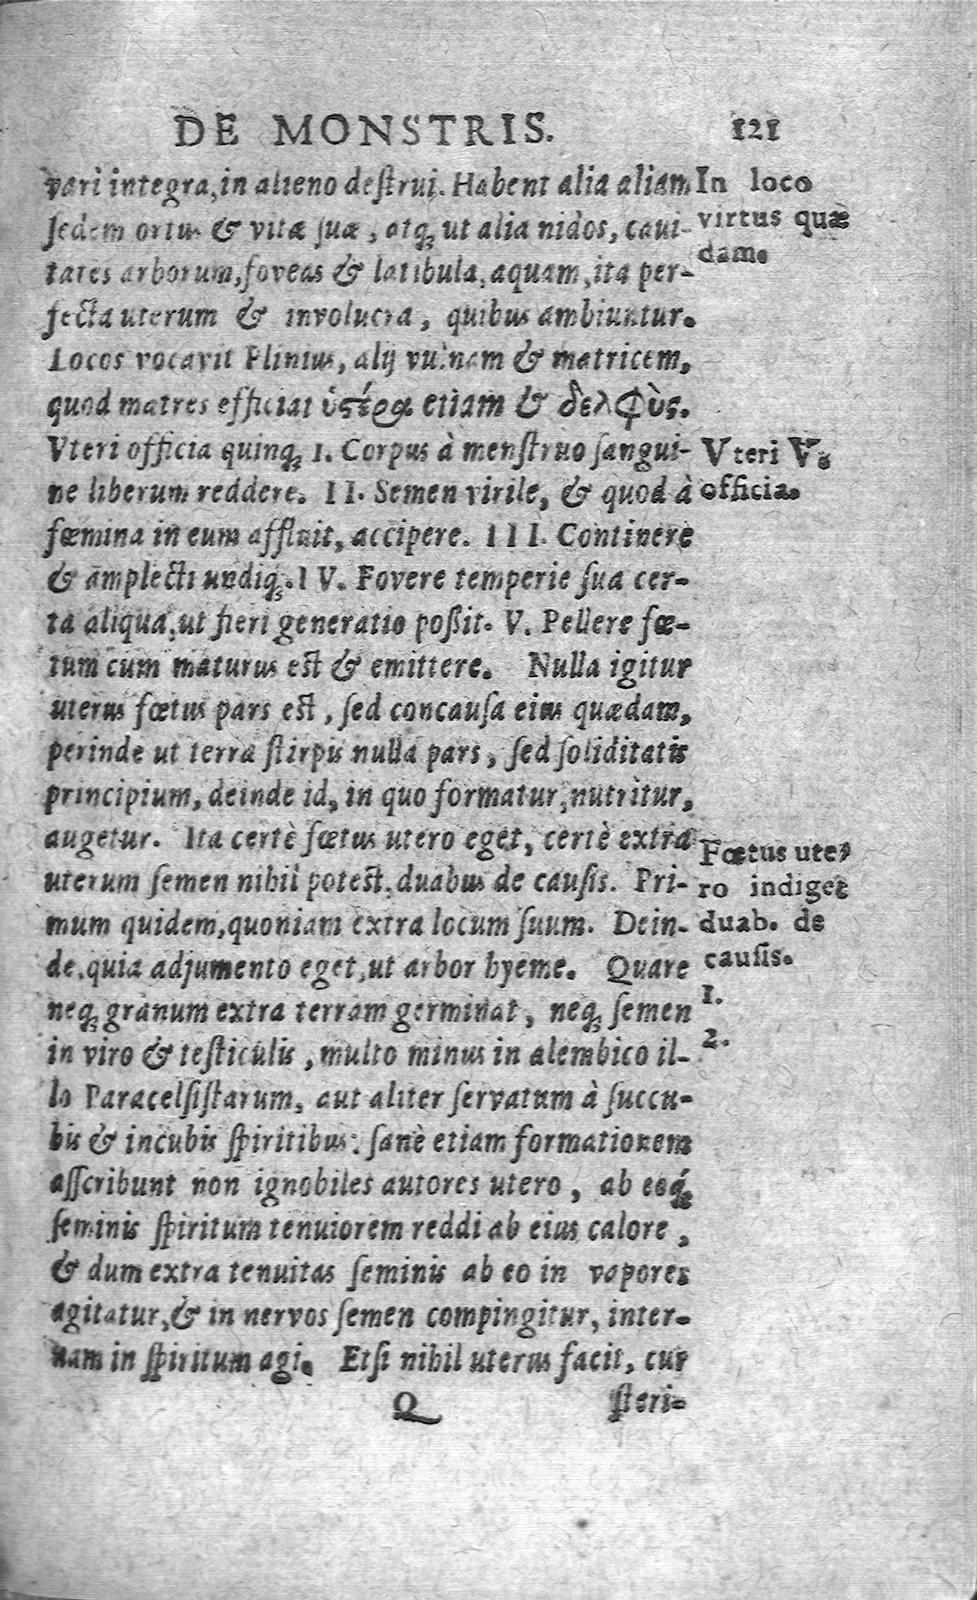 DE MONSTRIS. 121
vari integra, in alieno deſtrui. Habent alia aliam
ſedem ortus & vitæ ſuæ, atq; ut alia nidos, cavi-
tates arborum, foveas & latibula, aquam, ita per-
fecta uterum & involucra, quibus ambiuntur.
Locos vocavit Plinius, alij vulvam & matricem,
quod matres efficiat ὑϛέρα etiam & δελφὺς.
Vteri officia quinq; I. Corpus à menſtruo ſangui-
ne liberum reddere. II. Semen virile, & quod à
fœmina in eum affluit, accipere. III. Continere
& amplecti undiq;. IV. Fovere temperie ſua cer-
ta aliqua, ut fieri generatio poßit. V. Pellere fœ-
tum cum maturus est & emittere. Nulla igitur
uterus fœtus pars est, ſed concauſa eius quædam,
perinde ut terra ſtirpis nulla pars, ſed ſoliditatis
principium, deinde id, in quo formatur, nutritur,
augetur. Ita certè fœtus utero eget, certè extra
uterum ſemen nihil potest, duabus de cauſis. Pri-
mum quidem, quoniam extra locum ſuum. Dein-
de, quia adjumento eget, ut arbor hyeme. Quare
neq; granum extra terram germinat, neq; ſemen
in viro & teſticulis, multo minus in alembico il-
lo Paracelſiſtarum, aut aliter ſervatum à ſuccu-
bis & incubis ſpiritibus: ſanè etiam formationem
aſſcribunt non ignobiles autores utero, ab eoq́;
ſeminis ſpiritum tenuiorem reddi ab eius calore,
& dum extra tenuitas ſeminis ab eo in vapores
agitatur, & in nervos ſemen compingitur, inter-
nam in ſpiritum agi. Etſi nihil uterus facit, cur
Q ſteri-
In loco
virtus quæ
dam.
Vteri V.
officia.
Fœtus ute-
ro indiget
duab. de
cauſis.
1.
2.